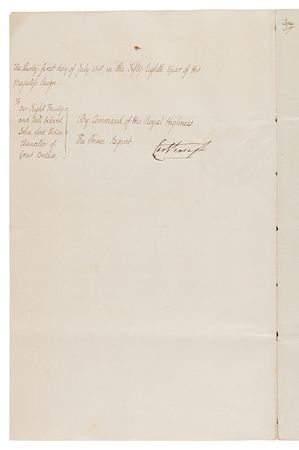 the thirty-first day of July 1818, in the Fifty-Eighth Year of His
Majesty's Reign.
To
Our Right Trusty
and Well beloved
John Lord Eldon
Chancellor of
Great Britain
By Command of His Royal Highness
The Prince Regent
Castlereagh
Copy